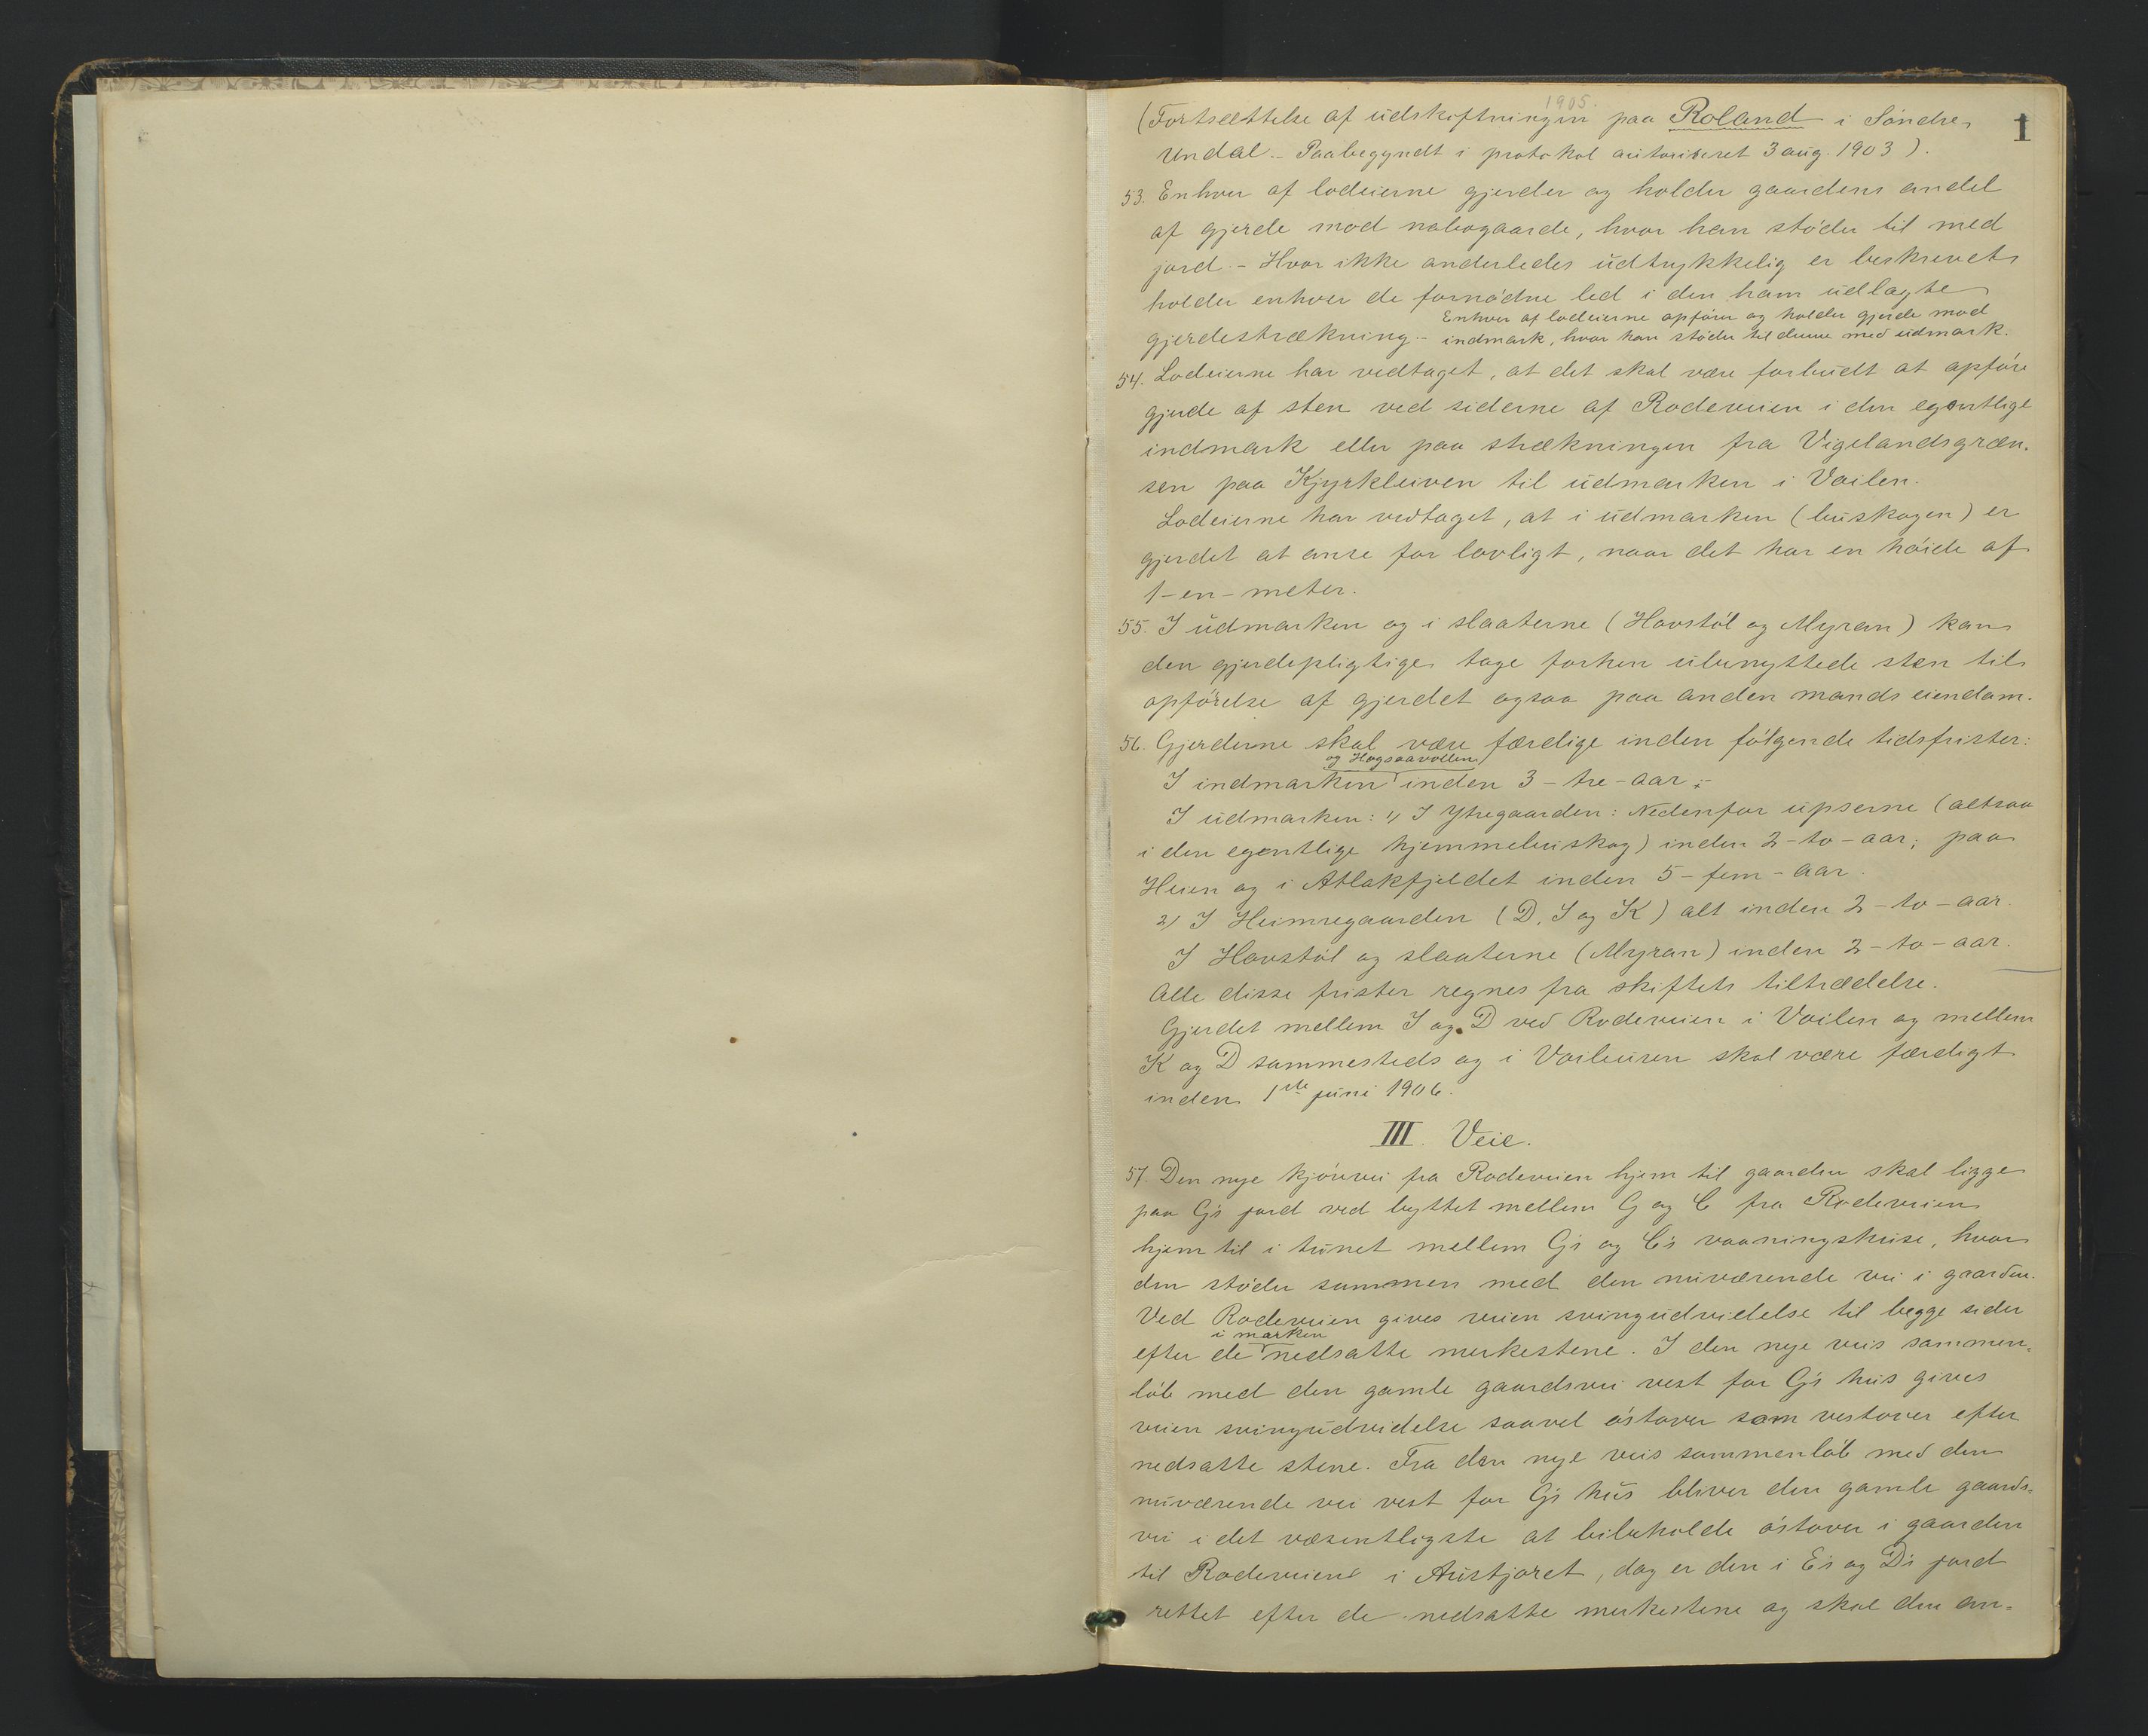 1905.
1
(Fortsættelse af udskiftningen paa Roland i Søndre
Undal. - Paabegyndt i protokol autoriseret 3 aug. 1903).
53. Enhver af lodeierne gjerder og holder gaardens andel
af gjerde mod nabogaarde, hvor han støder til med
jord. - Hvor ikke anderledes udtrykkelig er beskrevet
holder enhver de fornødne led i den ham udlagte
Enhver af lodeierne opfører og holder gjerde mod
gjerdestrækning. - indmark, hvor han støder til denne med udmark.
54. Lodeierne har vedtaget, at det skal være forbudt at opføre
gjerde af sten ved siderne af Rodeveien i den egentlige
indmark eller paa strækningen fra Vigelandsgræn-
sen paa Kjyrkleiven til udmarken i Voilen.
Lodeierne har vedtaget, at i udmarken (buskogen) er
gjerdet at anse for lovligt, naar det har en høide af
1-en-meter.
55. I udmarken og i slaaterne (Havstøl og Myran) kan
den gjerdepligtige tage forhen ubenyttede sten til
opførelse af gjerdet ogsaa paa anden mands eiendom.
56. Gjerderne skal være færdige inden følgende tidsfrister:
og Hogsaavollen
I indmarken inden 3 - tre - aar;-
I udmarken: 1) I Ytregaarden: Nedenfor upserne (altsaa
i den egentlige hjemmebuskog) inden 2 - to - aar; paa
Heien og i Atlakfjeldet inden 5 - fem - aar.
2) I Heimregaarden (D, I og K) alt inden 2 - to - aar.
I Havstøl og slaaterne (Myran) inden 2 - to - aar.
Alle disse frister regnes fra skiftets tiltrædelse.
Gjerdet mellem I og D ved Rodeveien i Voilen og mellem
K og D sammesteds og i skal være færdigt
inden 1ste juni 1906.
III. Veie.
57. Den nye kjørevei fra Rodeveien hjem til gaarden skal ligge
paa G's jord ved byttet mellem G og C fra Rodeveien
hjem til i tunet mellem G's og C's vaaningshuse, hvor
den støder sammen med den nuværende vei i gaarden.
Ved Rodeveien gives veien svingudvidelse til begge sider
i marken
efter de nedsatte merkestene. I den nye veis sammen-
løb med den gamle gaardsvei vest for G's hus gives
veien svingudvidelse saavel østover som vestover efter
nedsatte stene. Fra den nye veis sammenløb med den
nuværende vei vest for G's hus bliver den gamle gaards-
vei i det væsentligste at bibeholde østover i gaarden
til Rodeveien i Austjoret, dog er den i E's og D's jord
rettet efter de nedsatte merkestene og skal den an-